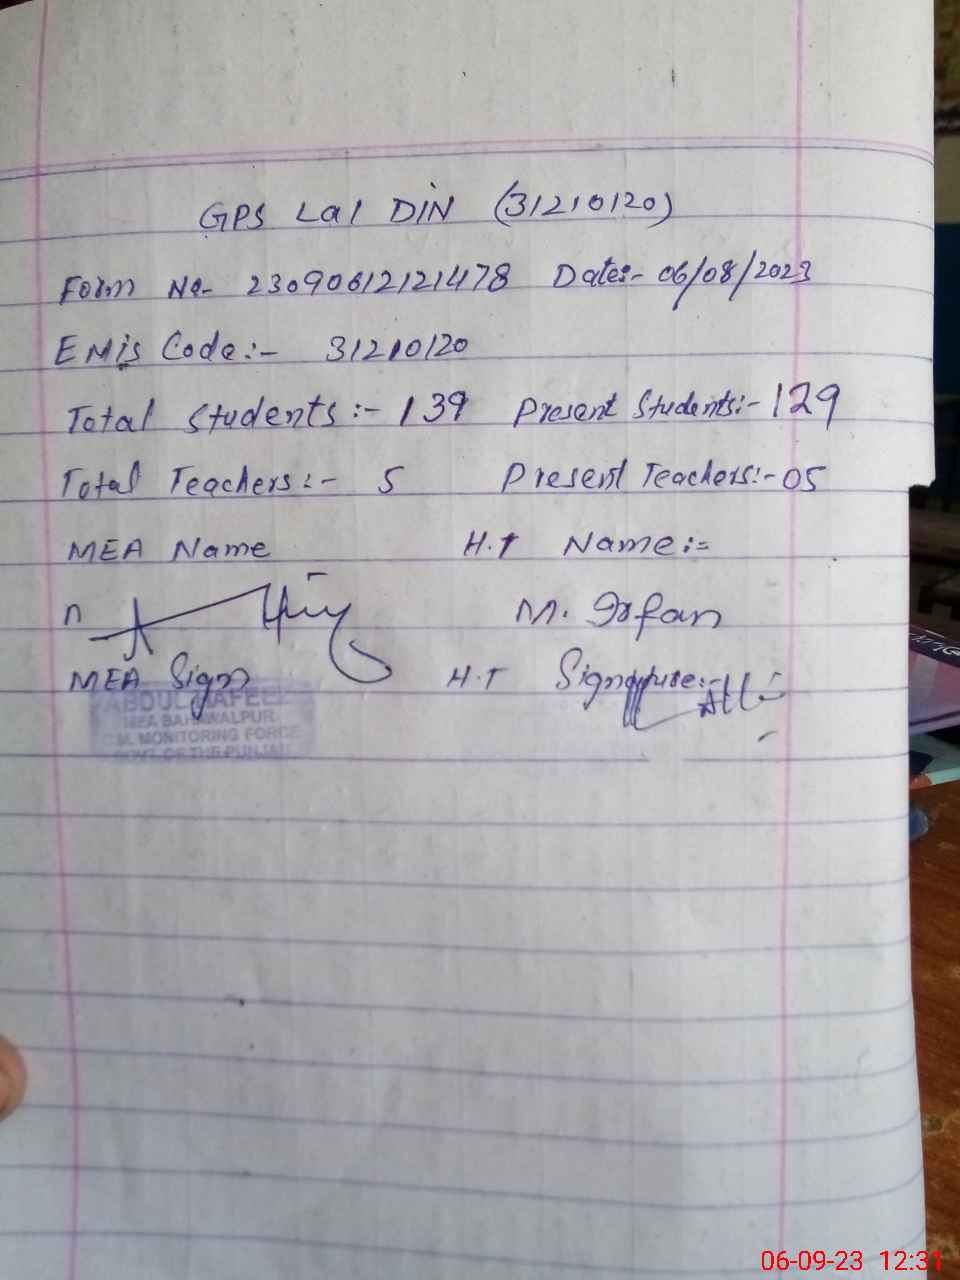 GPS Lal DIN (31210120)
Form No- 23090612121478 Date:- 06/08/2023
EMIS Code:- 31210120
Total Students:- 139 Present Students:- 129
Total Teachers:- 5 Present Teachers:- 05
MEA Name H.T Name:=
M. Irfan
MEA Sign H.T Signature:-
ABDUL HAFEEZ
MEA BAHAWALPUR
C.M. MONITORING FORCE
GOVT. OF THE PUNJAB
06-09-23 12:31